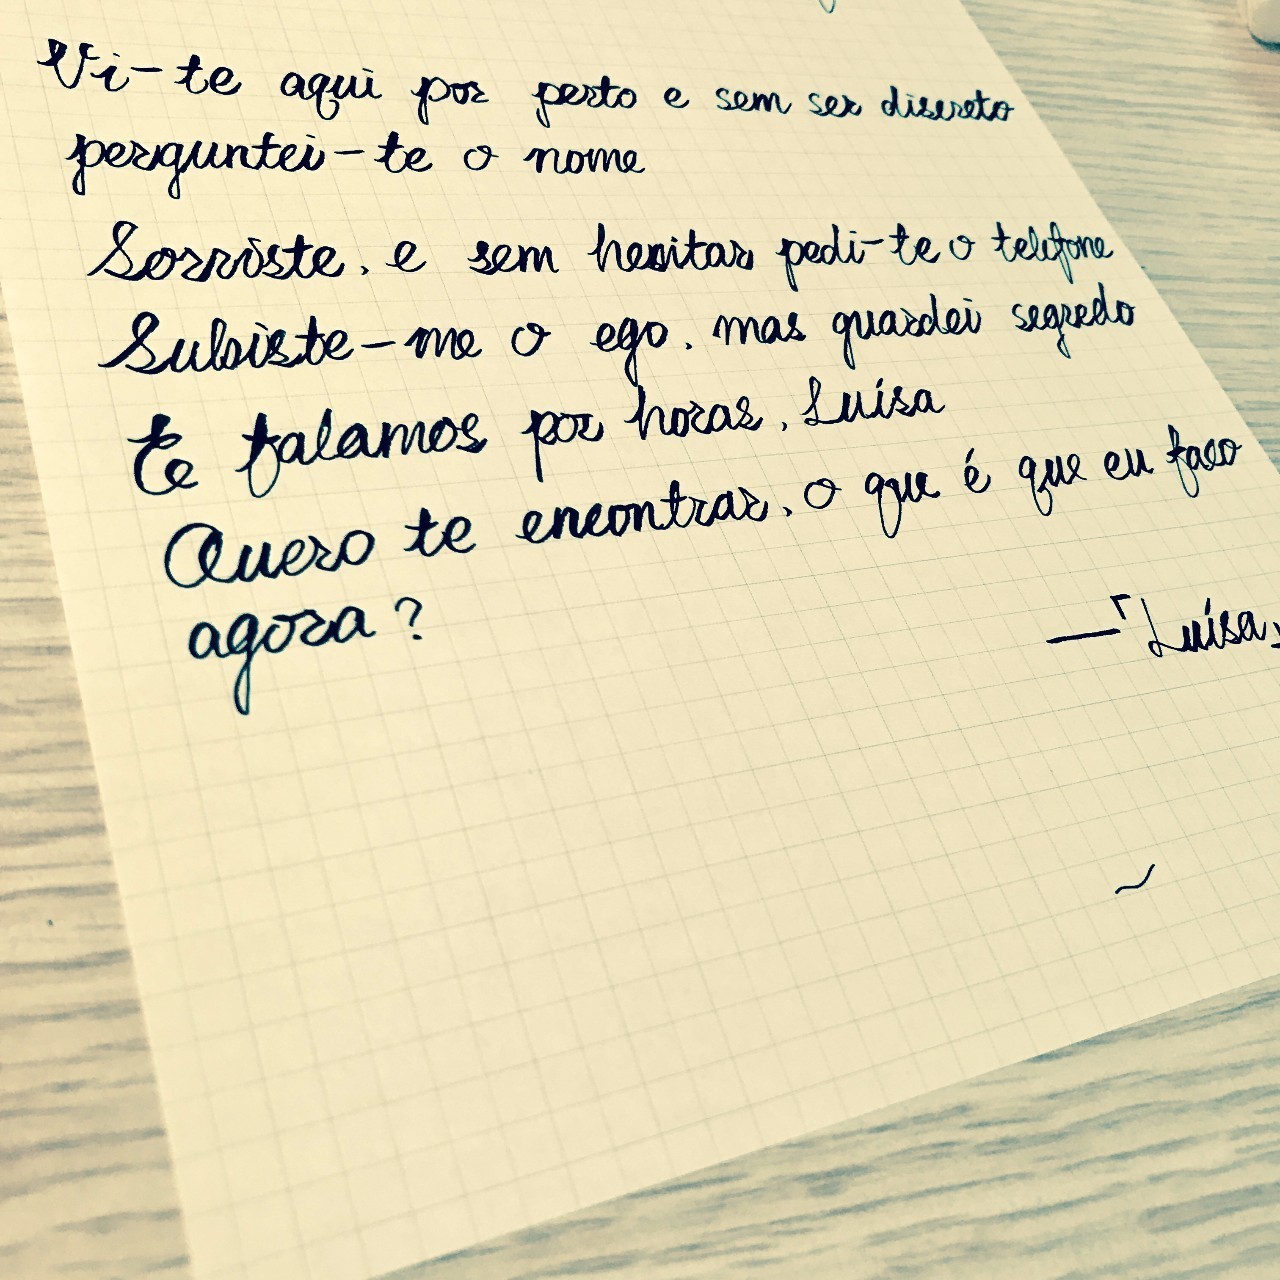 Vi-te aqui por perto e sem ser discreto
perguntei-te o nome
Sorriste, e sem hesitar pedi-te o telefone
Subiste-me o ego, mas guardei segredo
te falamos por horas, Luísa
Quero te encontrar, o que é que eu faco
agora?
—「Luísa